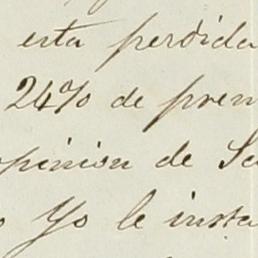 esta perdida
24% de prem
opinion de Sa
o Yo le insta